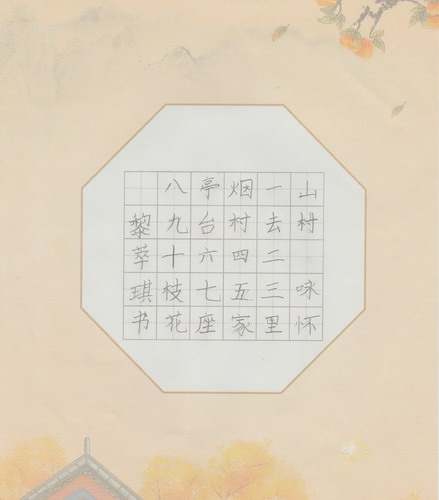 山村 咏怀
一去二三里
烟村四五家
亭台六七座
八九十枝花
黎萃琪书